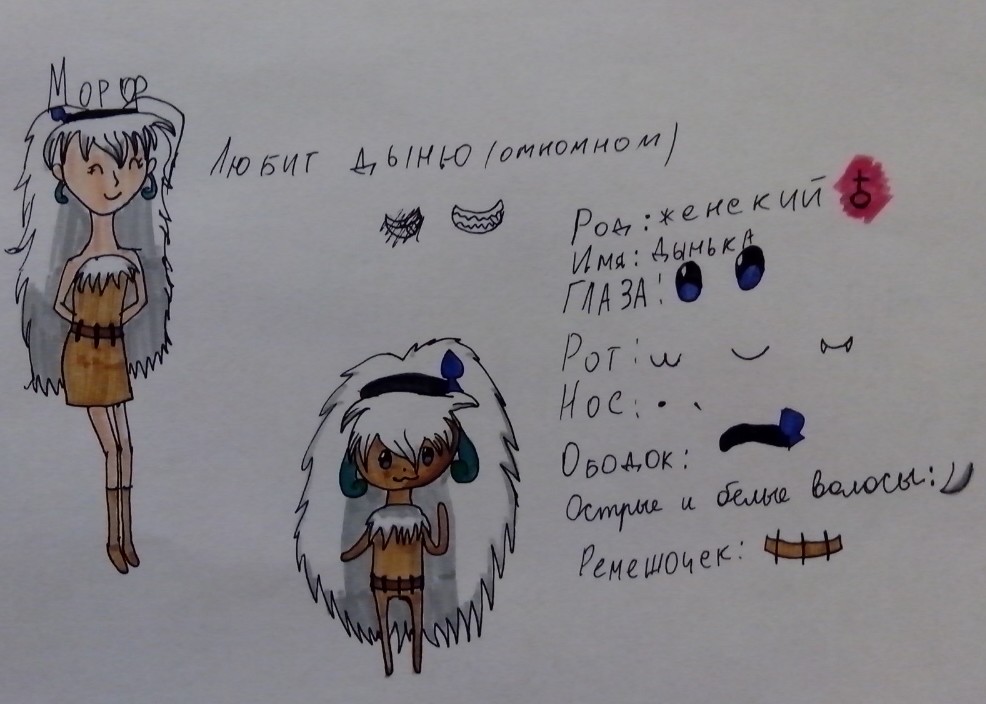 Морф
Любит дыню (омномном)
Род: женский
Имя: дынька
ГЛАЗА:
Рот:
Нос:
Ободок:
Острые и белые волосы:
Ремешочек: